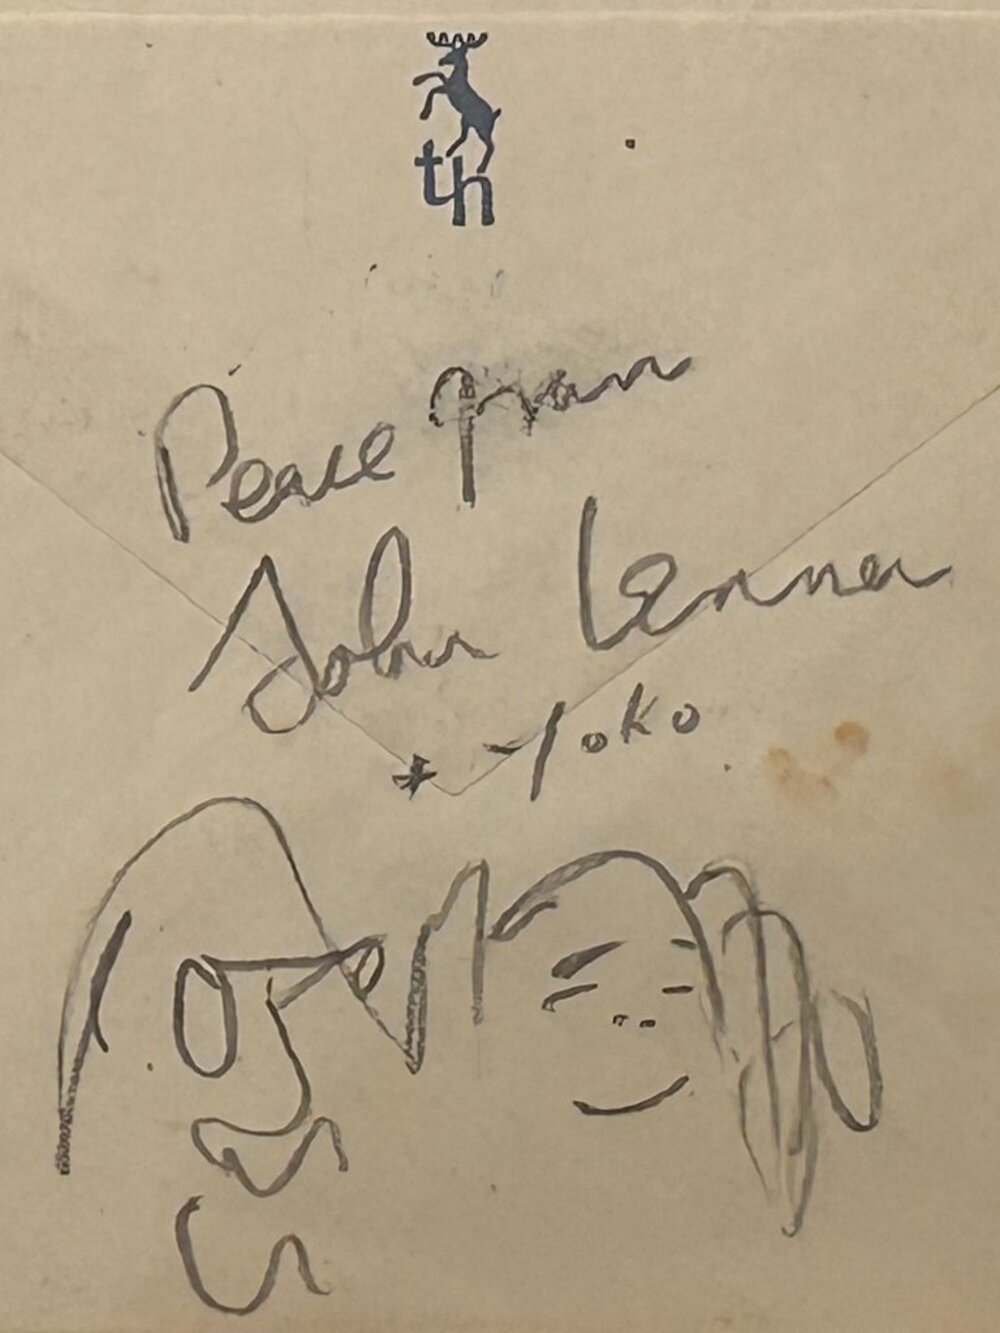 th
Peace man
John Lennon
+ Yoko